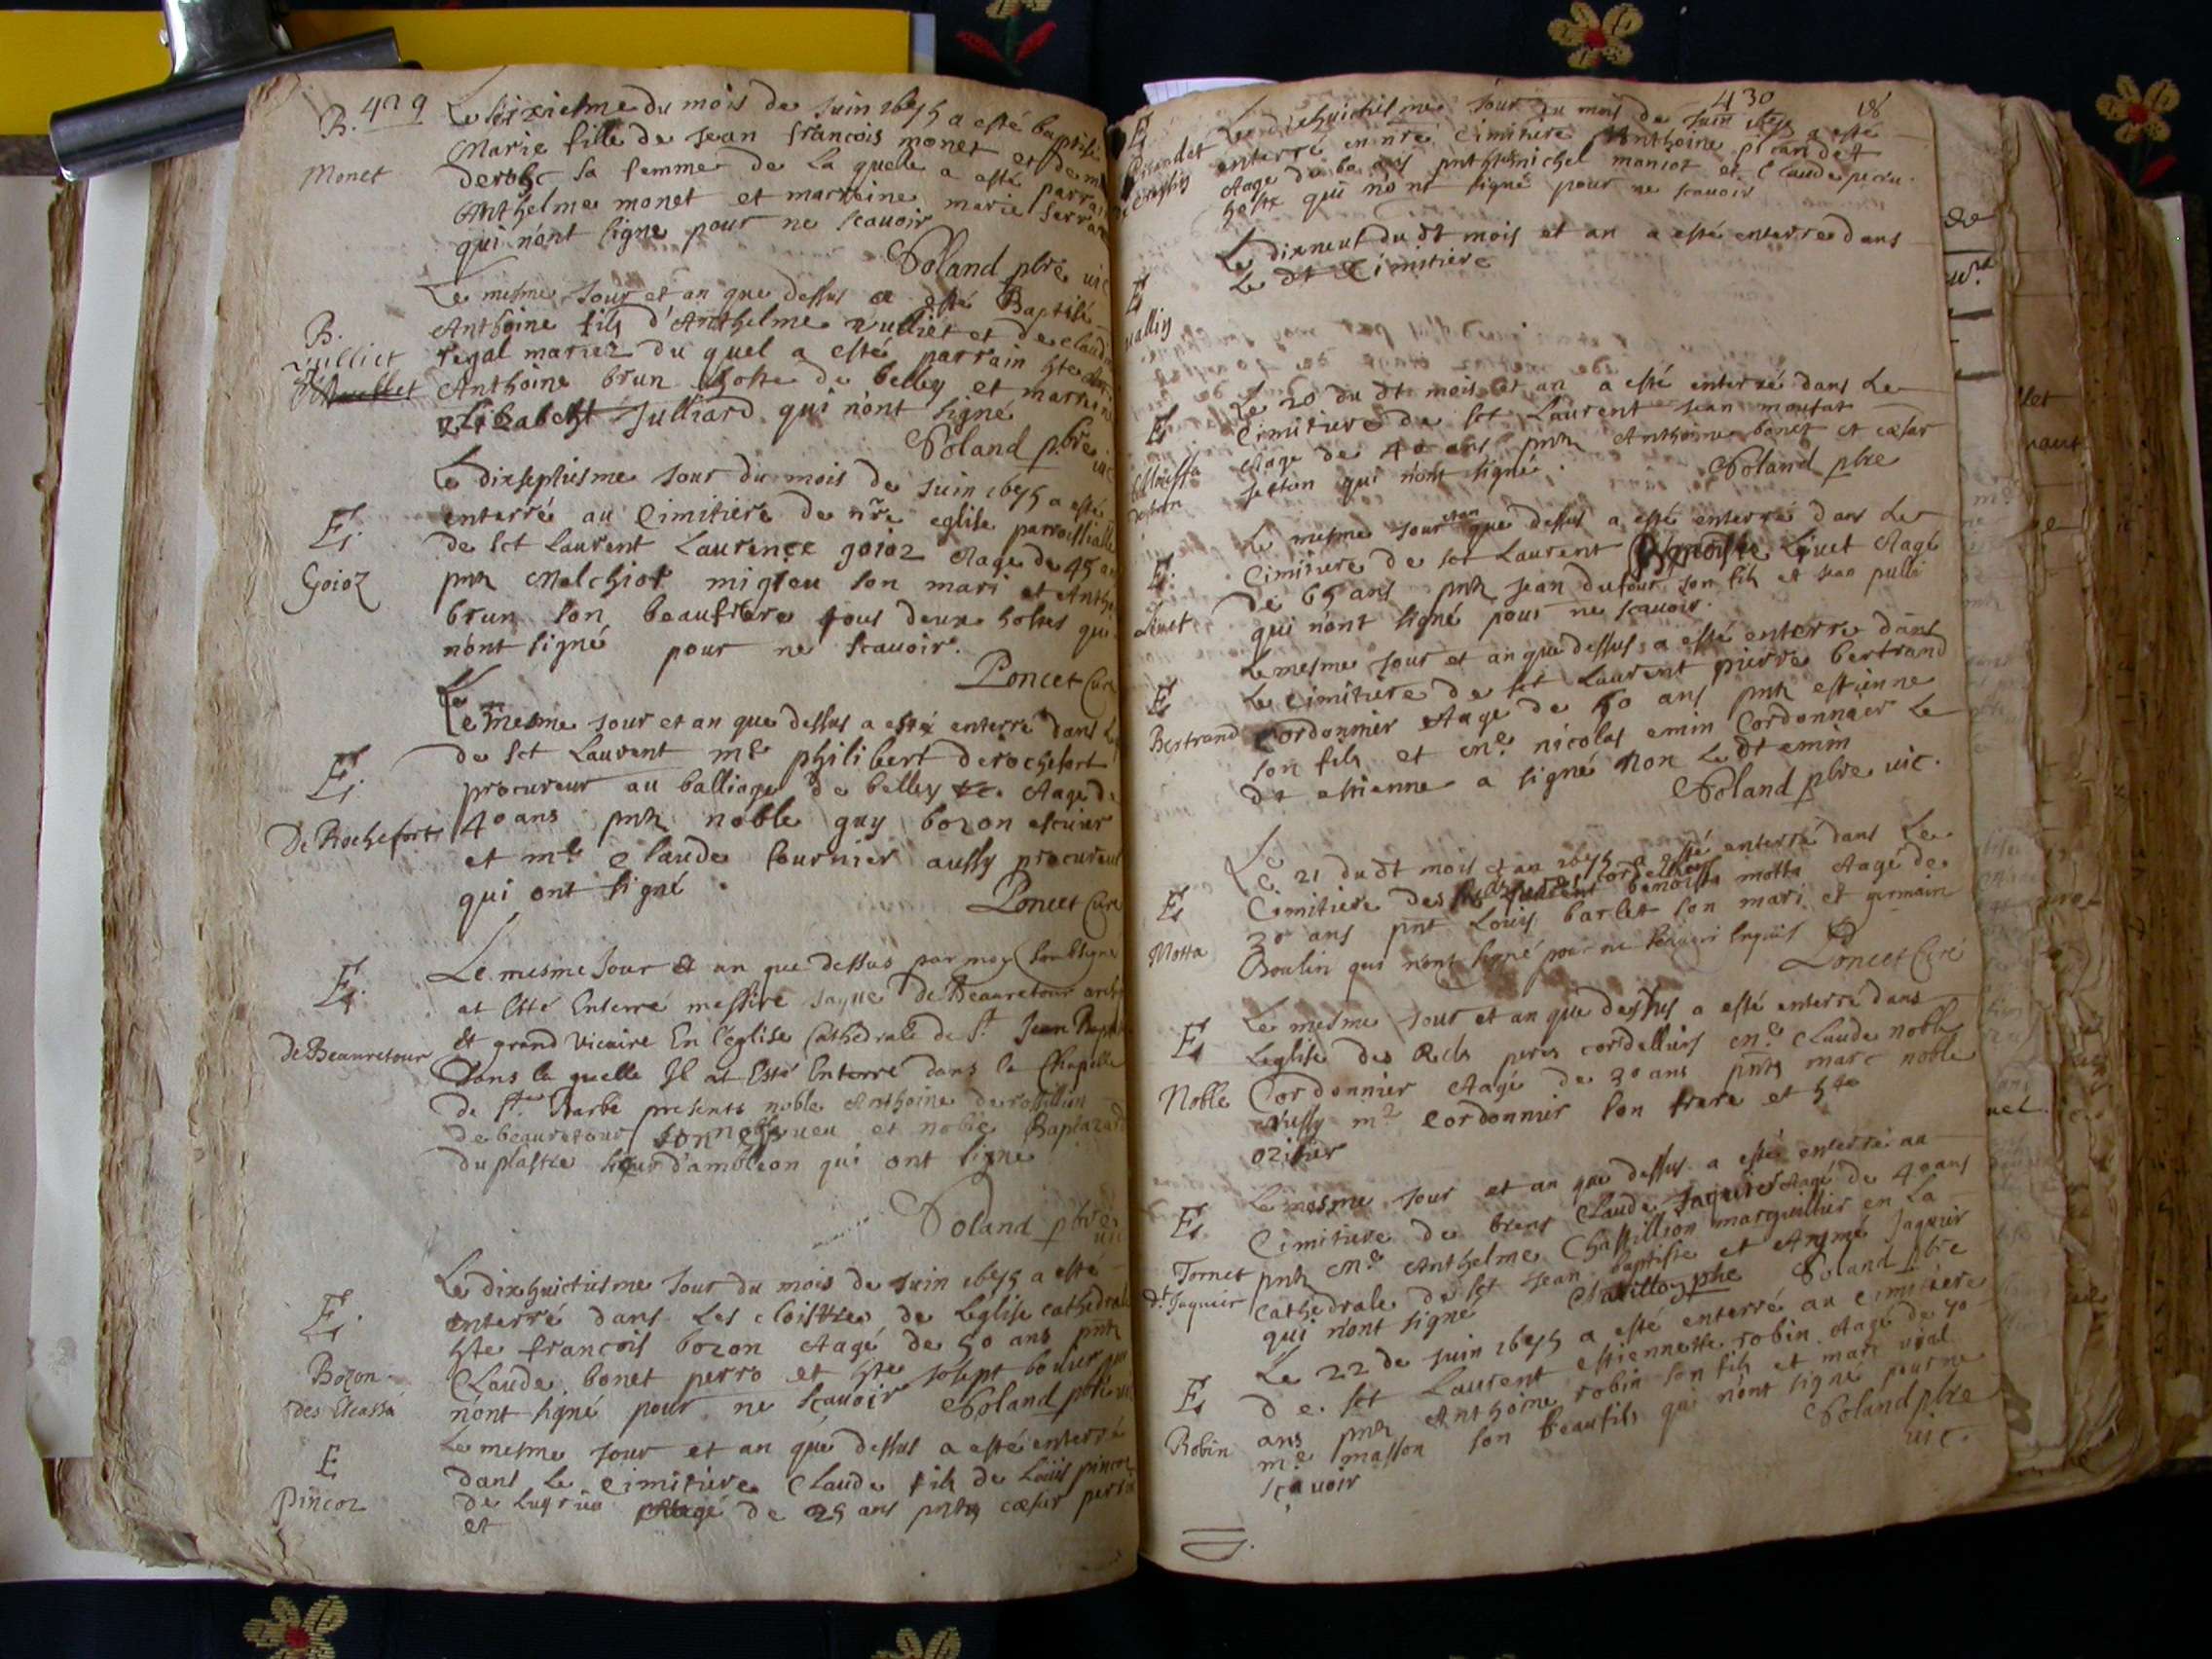 429
B.
Monet
Le seixiesme du mois de Juin 1675 a esté baptisé
Marie fille de Jean françois monet et de
sa femme de La quelle a esté parrain
Anthelme monet et marreine marie
qui n'ont signe pour ne scauoir
Poland pbre uic
B.
Vulliet
Le mesme Jour et an que dessus a esté Baptisé
Anthoine fils d'Anthelme vulliet et de claud
regal mariez du quel a esté parrain hte
Anthoine brun hoste de belley et marreine
Elizabeth Julliard qui n'ont signé
Poland pbre uic
E.
Goioz
Le dixseptiesme Jour du mois de Juin 1675 a esté
enterré au Cimitiere de nre eglise parroissialle
de sct Laurent Laurence goioz Aage de 45 an
pnts Melchiot migieu son mari et Antho
brun son beaufrere tous deux hostes qui
n'ont signé pour ne scauoir.
Poncet Curé
E.
De Rochefort
Le mesme Jour et an que dessus a esté enterré dans L
de sct Laurent me philibert derochefort
procureur au balliage de belley Aage de
40 ans pnts noble guy bozon escuier
et me Claude fournier aussy procureur
qui ont signé
Poncet Curé
E.
De Beauretour
Le mesme Jour et an que dessus par moy soubsigné
at esté Enterré messire de Beauretour
et grand Vicaire En l'eglise Cathedrale de St Jean Bapt
Dans la quelle Il at Esté Enterré dans la Chapelle
de ste Barbe presents noble Anthoine de
de beauretour son nepueu et noble
duplastre sieur d'ambleon qui ont signe
Poland pbre uic
E.
Bozon
Le dixhuictiesme Jour du mois de Juin 1675 a esté
enterré dans les cloistres de Leglise cathedral
hte françois bozon Aagé de 50 ans pnts
Claude bonet perro et hte Josept qui
n'ont signé pour ne scauoir Poland pbre uic
E
Pincoz
Le mesme Jour et an que dessus a esté enterré
dans Le Cimitiere Claude fils de Loüis pincoz
de Aagé de 25 ans pnts cæsar
et
430
E
Le dixhuictiesme Jour du mois de Juin 1675 a esté
enterré en nre Cimitiere Anthoine picandet
Aage de ans pnts michel et Claude
hoste qui n'ont signé pour ne scauoir
E
Le dixneuf du dt mois et an a esté enterrée dans
Le dt Cimitiere
E
Le 20 du dt mois et an a esté enterré dans Le
Cimitiere de sct Laurent Jean
Aage de 40 ans pnts Anthoine bonet et cæsar
qui n'ont signé.
Poland pbre
E.
Liuet
Le mesme Jour et an que dessus a esté enterré dans Le
Cimitiere de sct Laurent Liuet Aagé
de 65 ans pnts Jean dufour son fils et Jean
qui n'ont signé pour ne scauoir.
E
Bertrand
Le mesme Jour et an que dessus a esté enterre dans
Le Cimitiere de sct Laurent pierre bertrand
Cordonnier Aage de 50 ans pnts estienne
son fils et me nicolas emin Cordonnier Le
dt estienne a signé non Le dt emin
Poland pbre uic.
E
Motta
Le 21 du dt mois et an 1675 a esté enterré dans Le
Cimitiere des cordelliers benoista motta Aagé de
30 ans pnt Louis barlet son mari et germain
Boulin qui n'ont signé pour ne scauoir Enquis
Poncet Curé
E
Noble
Le mesme Jour et an que dessus a esté enterré dans
Leglise des Rds peres cordelliers me Claude noble
Cordonnier Aagé de 30 ans pnts marc noble
Aussy me Cordonnier son frere et hte
E
Tornet
dt Jaquier
Le mesme Jour et an que dessus a esté enterré au
Cimitiere de brens Claude Jaquier Aagé de 40 ans
pnts me Anthelme Chastillion marguillier en La
cathedrale de sct Jean baptiste et Aymé Jaquier
qui n'ont signé Poland pbre
E
Robin
Le 22 de Juin 1675 a esté enterré au cimitiere
de sct Laurent estiennette robin Aagé de 70
ans pnts Anthoine robin son fils et marc uial
me masson son beaufils qui n'ont signé pour ne
sçauoir
Poland pbre
uic.